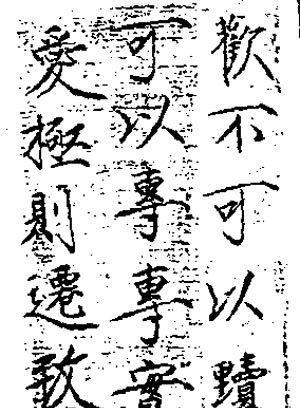 歡不可以黷
可以專專實
愛極則遷致